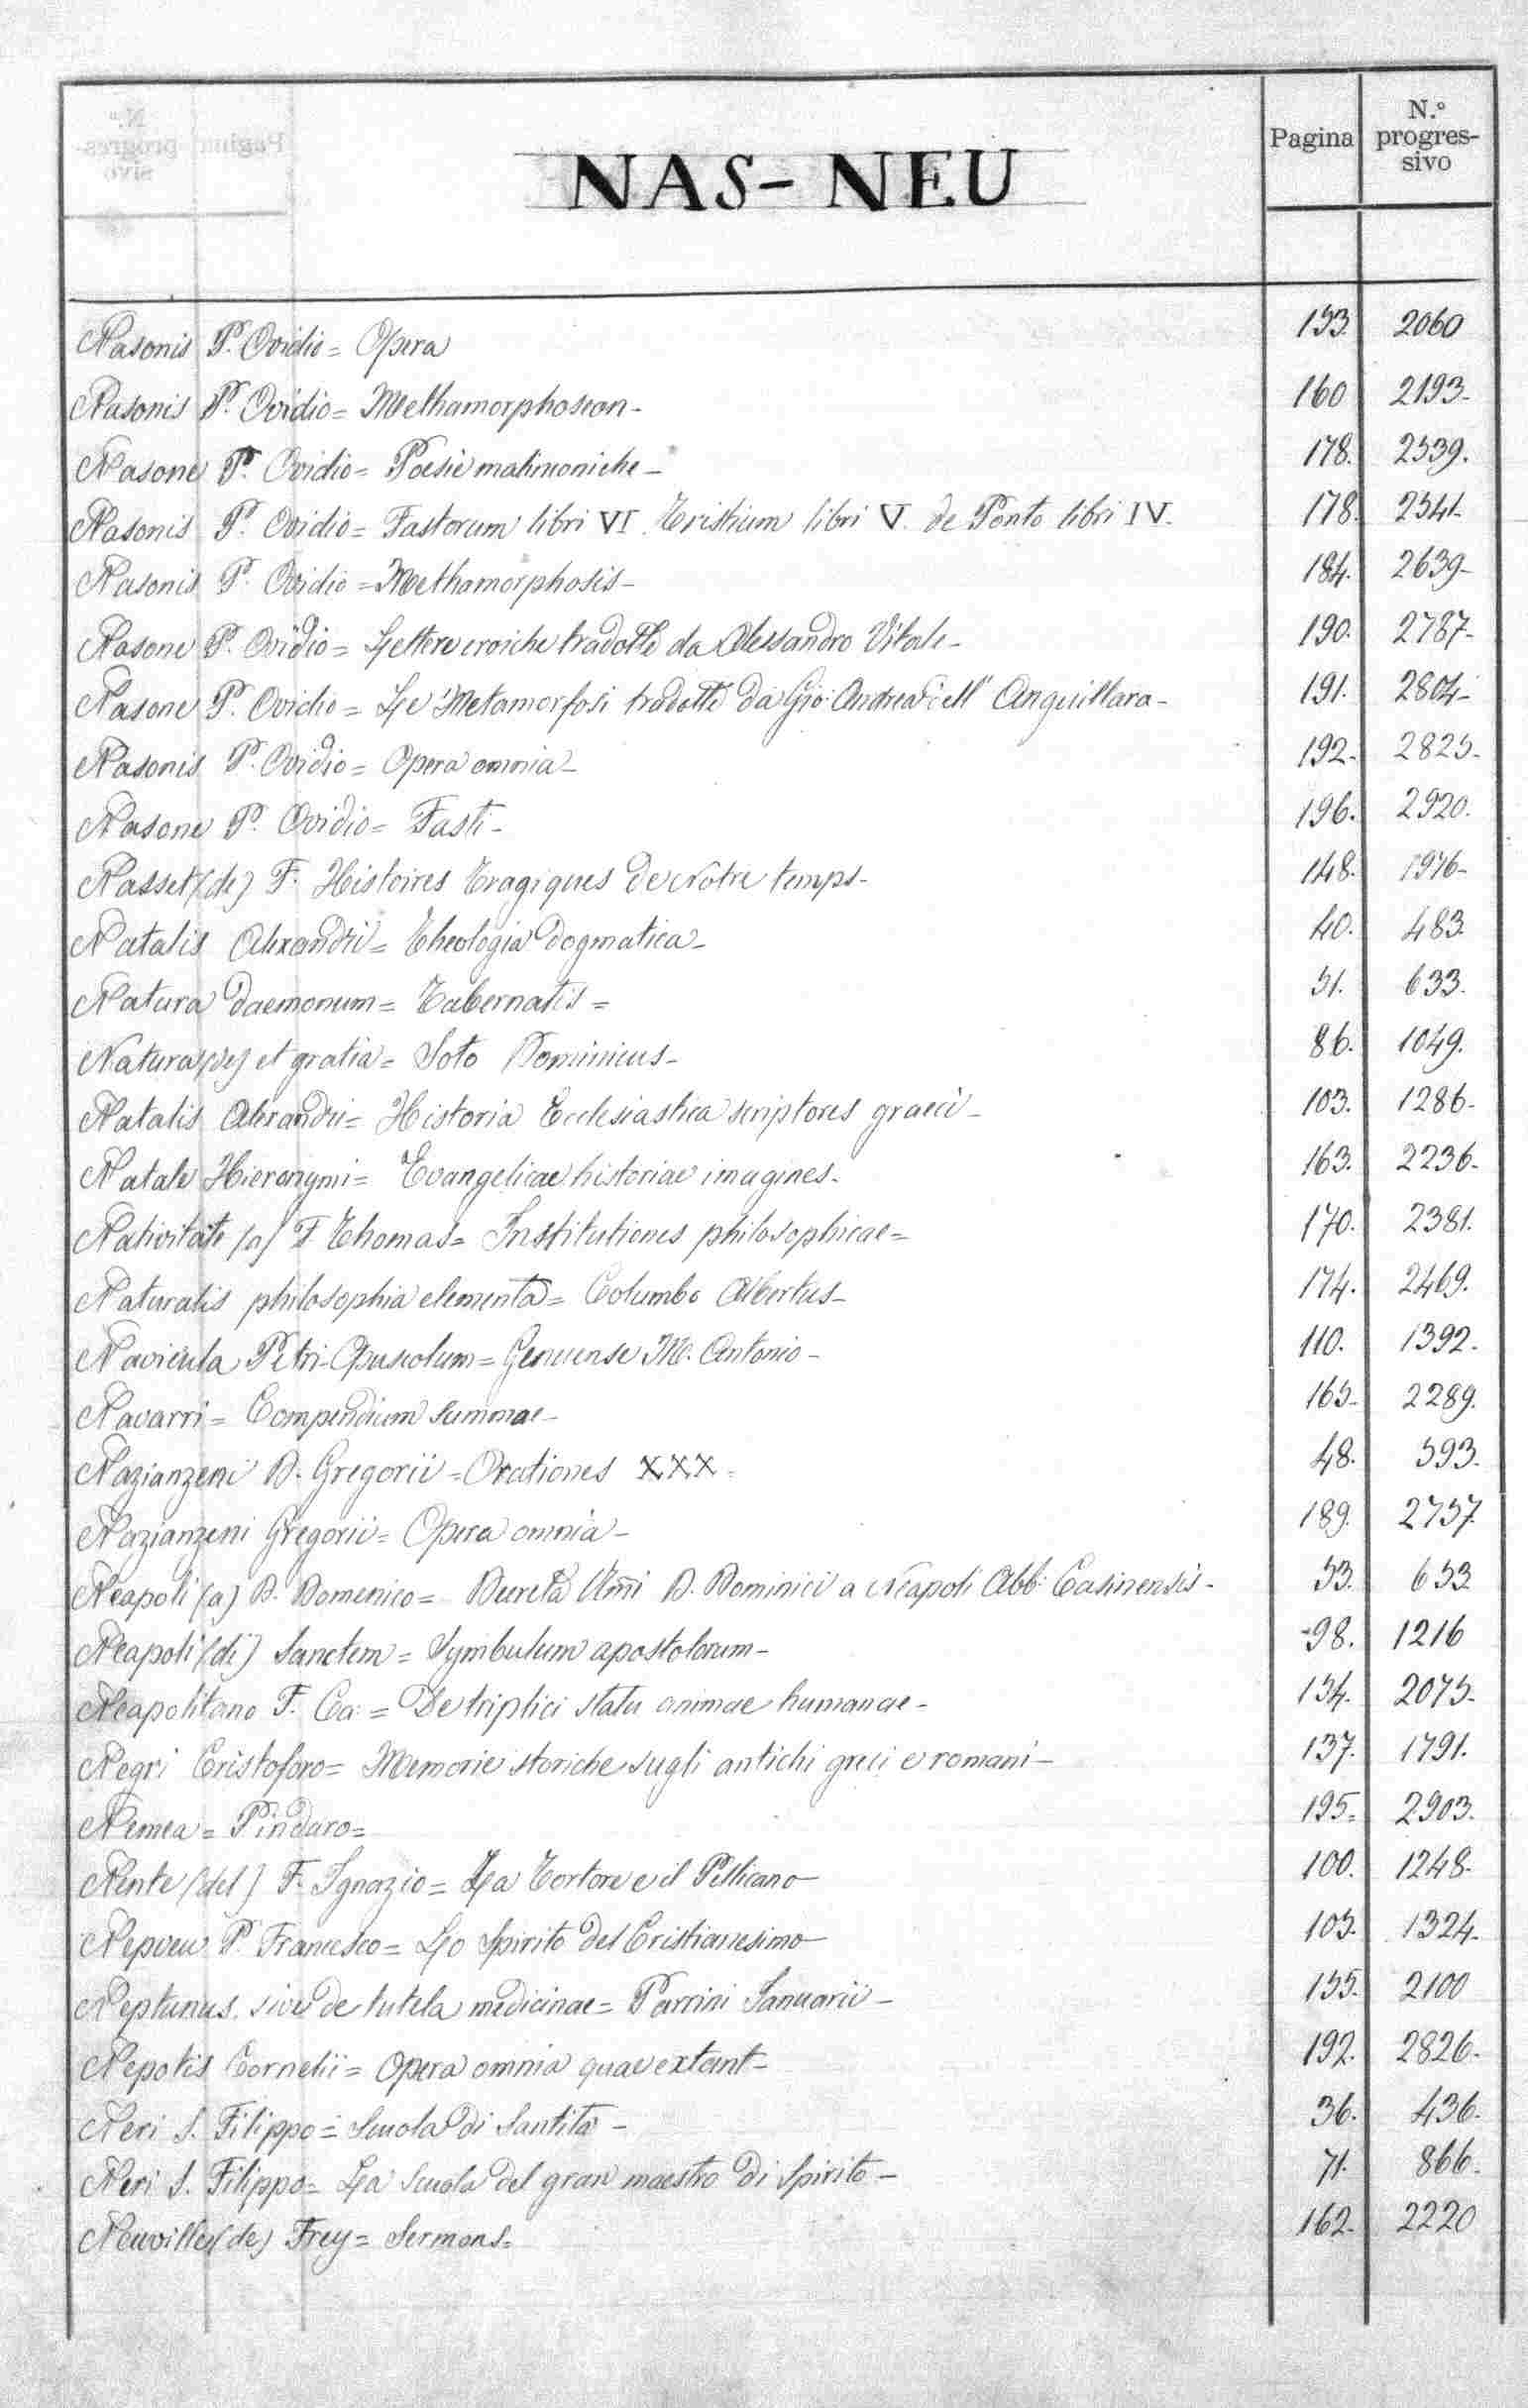 NAS-NEU
Pagina
N.º progressivo
Nasonis P. Ovidio= Opera 153. 2060
Nasonis P. Ovidio= Methamorphoseon- 160 2193-
Nasone P. Ovidio= Poesie matimoniche- 178. 2539.
Nasonis P. Ovidio= Fastorum libri VI. Tristium libri V. de Ponto libri IV. 178. 2541-
Nasonis P. Ovidio=Methamorphosis- 184. 2639-
Nasone P. Ovidio= Lettere eroiche tradotte da Alessandro Vitale- 190. 2787-
Nasone P. Ovidio= Le Metamorfosi tradotte da Gio: Andrea dell' Anguillara- 191. 2804-
Nasonis P. Ovidio= Opera omnia- 192- 2825-
Nasone P. Ovidio= Fasti- 196. 2920.
Nasset (de) F. Histoires Tragiques de Notre temps- 148. 1976-
Natalis Alexandri= Theologia Dogmatica- 40. 483.
Natura daemonum= Tabernatis= 51. 633.
Natura (de) et gratia= Soto Dominicus- 86. 1049.
Natalis Alexandri= Historia Ecclesiastica scriptores graeci- 103. 1286-
Natale Hieronymi= Evangelicae historiae imagines- 163. 2236-
Nativitate (a) F. Thomas= Institutiones philosophicae= 170. 2381.
Naturalis philosophia elementa= Columbo Albertus- 174. 2469.
Navicula Petri-Opuscolum= Genuense M. Antonio- 110. 1392-
Navarri= Compendium summae- 165- 2289.
Nazianzeni D. Gregorii=Orationes XXX= 48. 593.
Nazianzeni Gregorii= Opera omnia- 189. 2757.
Neapoli (a) D. Domenico= Decreta D. Dominici a Neapoli Abb: Casinensis- 53. 653
Neapoli (di) Sanctem= Symbulum apostolorum- -98. 1216
Neapolitano F. Ca:= De triplici statu animae humanae- 154. 2075-
Negri Cristoforo= Memorie storiche sugli antichi greci e romani- 137. 1791.
Nemea= Pindaro= 195= 2903.
Nente (del) F. Ignazio= La Tortore e il Pellicano- 100. 1248-
Nepveu P. Francesco= Lo Spirito del Cristianesimo- 105- 1324-
Neptunus. sive de tutela medicinae= Parrini Januarii- 155- 2100
Nepotis Cornelii= Opera omnia quae extant- 192. 2826-
Neri S. Filippo= Scuola di Santità- 36. 436.
Neri S. Filippo= La scuola del gran maestro di Spirito- 71. 866.
Neuville (de) Frey= Sermons= 162- 2220